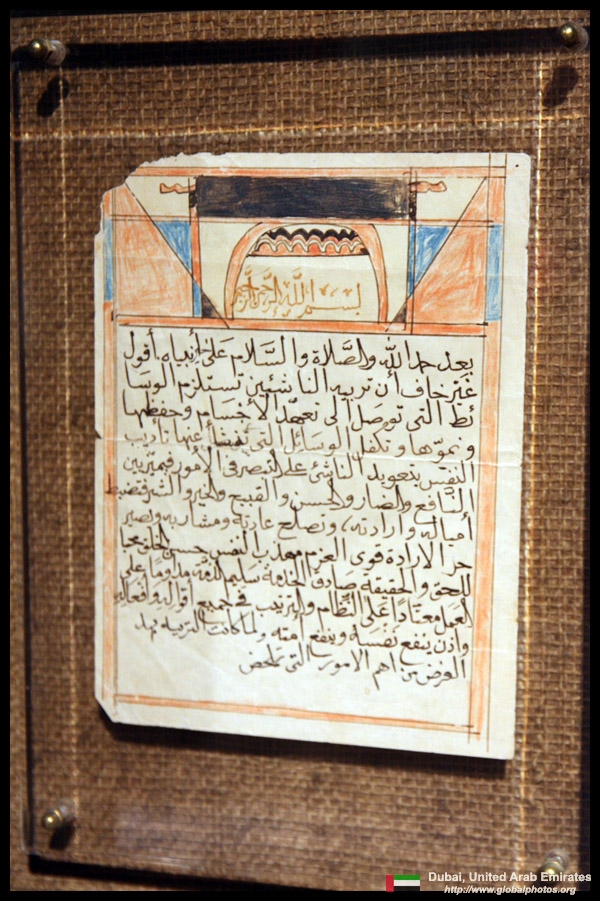 بسم الله الرحمن الرحيم
بعد حمد الله والصلاة والسلام على خير أنبياه. أقول
غير خاف أن تربيه الناشئين تستلزم الوسا
ئط التى توصل الى تعهد الأجسام وحفظها
ونموّها وتكفل الوسائل التى ينشأ عنها تأديب
النفس بتعويد الناشئ على التبصر فى الأمور فيميز بين
النافع والضار والحسن والقبيح والخير والشر فتضبط
أمياله وارادته، وتصلح عادته ومشاربه ويصير
حر الارادة قوى العزم مهذب النفس حسن الخلق محبا
للحق والحقيقة صادق الخدمة سليم الذمة مداوما على
العمل معتادًا على النظام والترتيب فى جميع أقواله وأفعاله
واذن ينفع نفسه وينفع أمته ولما كانت التربيه بهذ
الغرض من اهم الامور التى
Dubai, United Arab Emirates
http://www.globalphotos.org